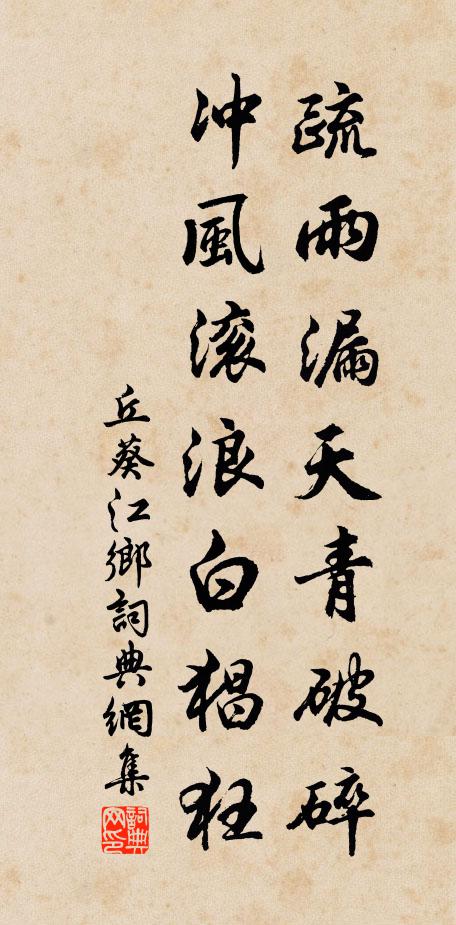 疏雨漏天青破碎
冲風滚浪白猖狂
丘葵江鄉詞典網集
詞典網印